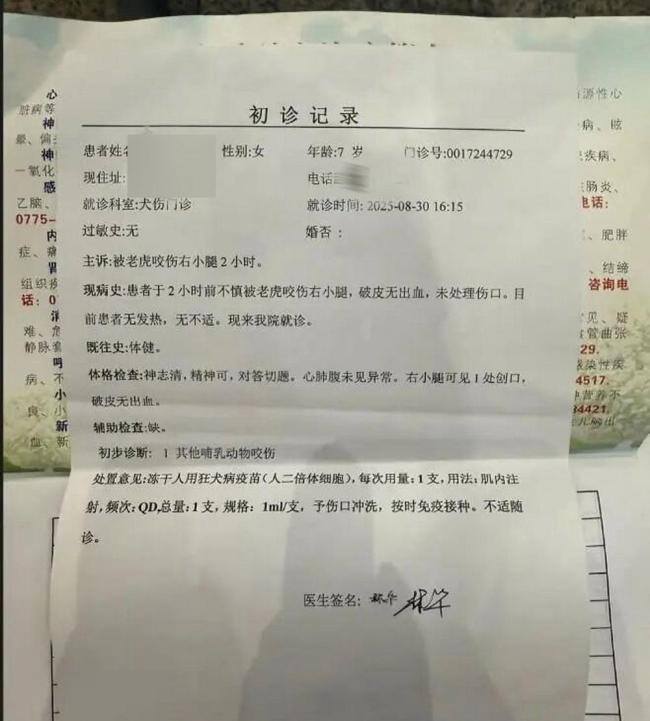 初诊记录
患者姓名 性别:女 年龄:7 岁 门诊号:0017244729
现住址: 电话:
就诊科室:犬伤门诊 就诊时间: 2025-08-30 16:15
过敏史:无 婚否 :
主诉:被老虎咬伤右小腿2小时。
现病史:患者于2小时前不慎被老虎咬伤右小腿,破皮无出血,未处理伤口。目
前患者无发热,无不适。现来我院就诊。
既往史:体健。
体格检查:神志清,精神可,对答切题。心肺腹未见异常。右小腿可见1处创口,
破皮无出血。
辅助检查:缺。
初步诊断: 1 其他哺乳动物咬伤
处置意见:冻干人用狂犬病疫苗(人二倍体细胞),每次用量:1支,用法:肌内注
射,频次:QD,总量:1支,规格: 1ml/支,予伤口冲洗,按时免疫接种。不适随
诊。
医生签名: 林华
心
脏病等
神
晕、偏
神
一氧化
感
乙脑、
0775-
内
症、痛
胃
组织
话: 0
消
难、
静脉
呼
病、不
小
良、小
新
血、新
源性心
病、眩
疾病、
肠炎、
电话:
肥胖
、结缔
咨询电
见、疑
管曲张
29.
感染性疾
4517.
种营养不
84421.